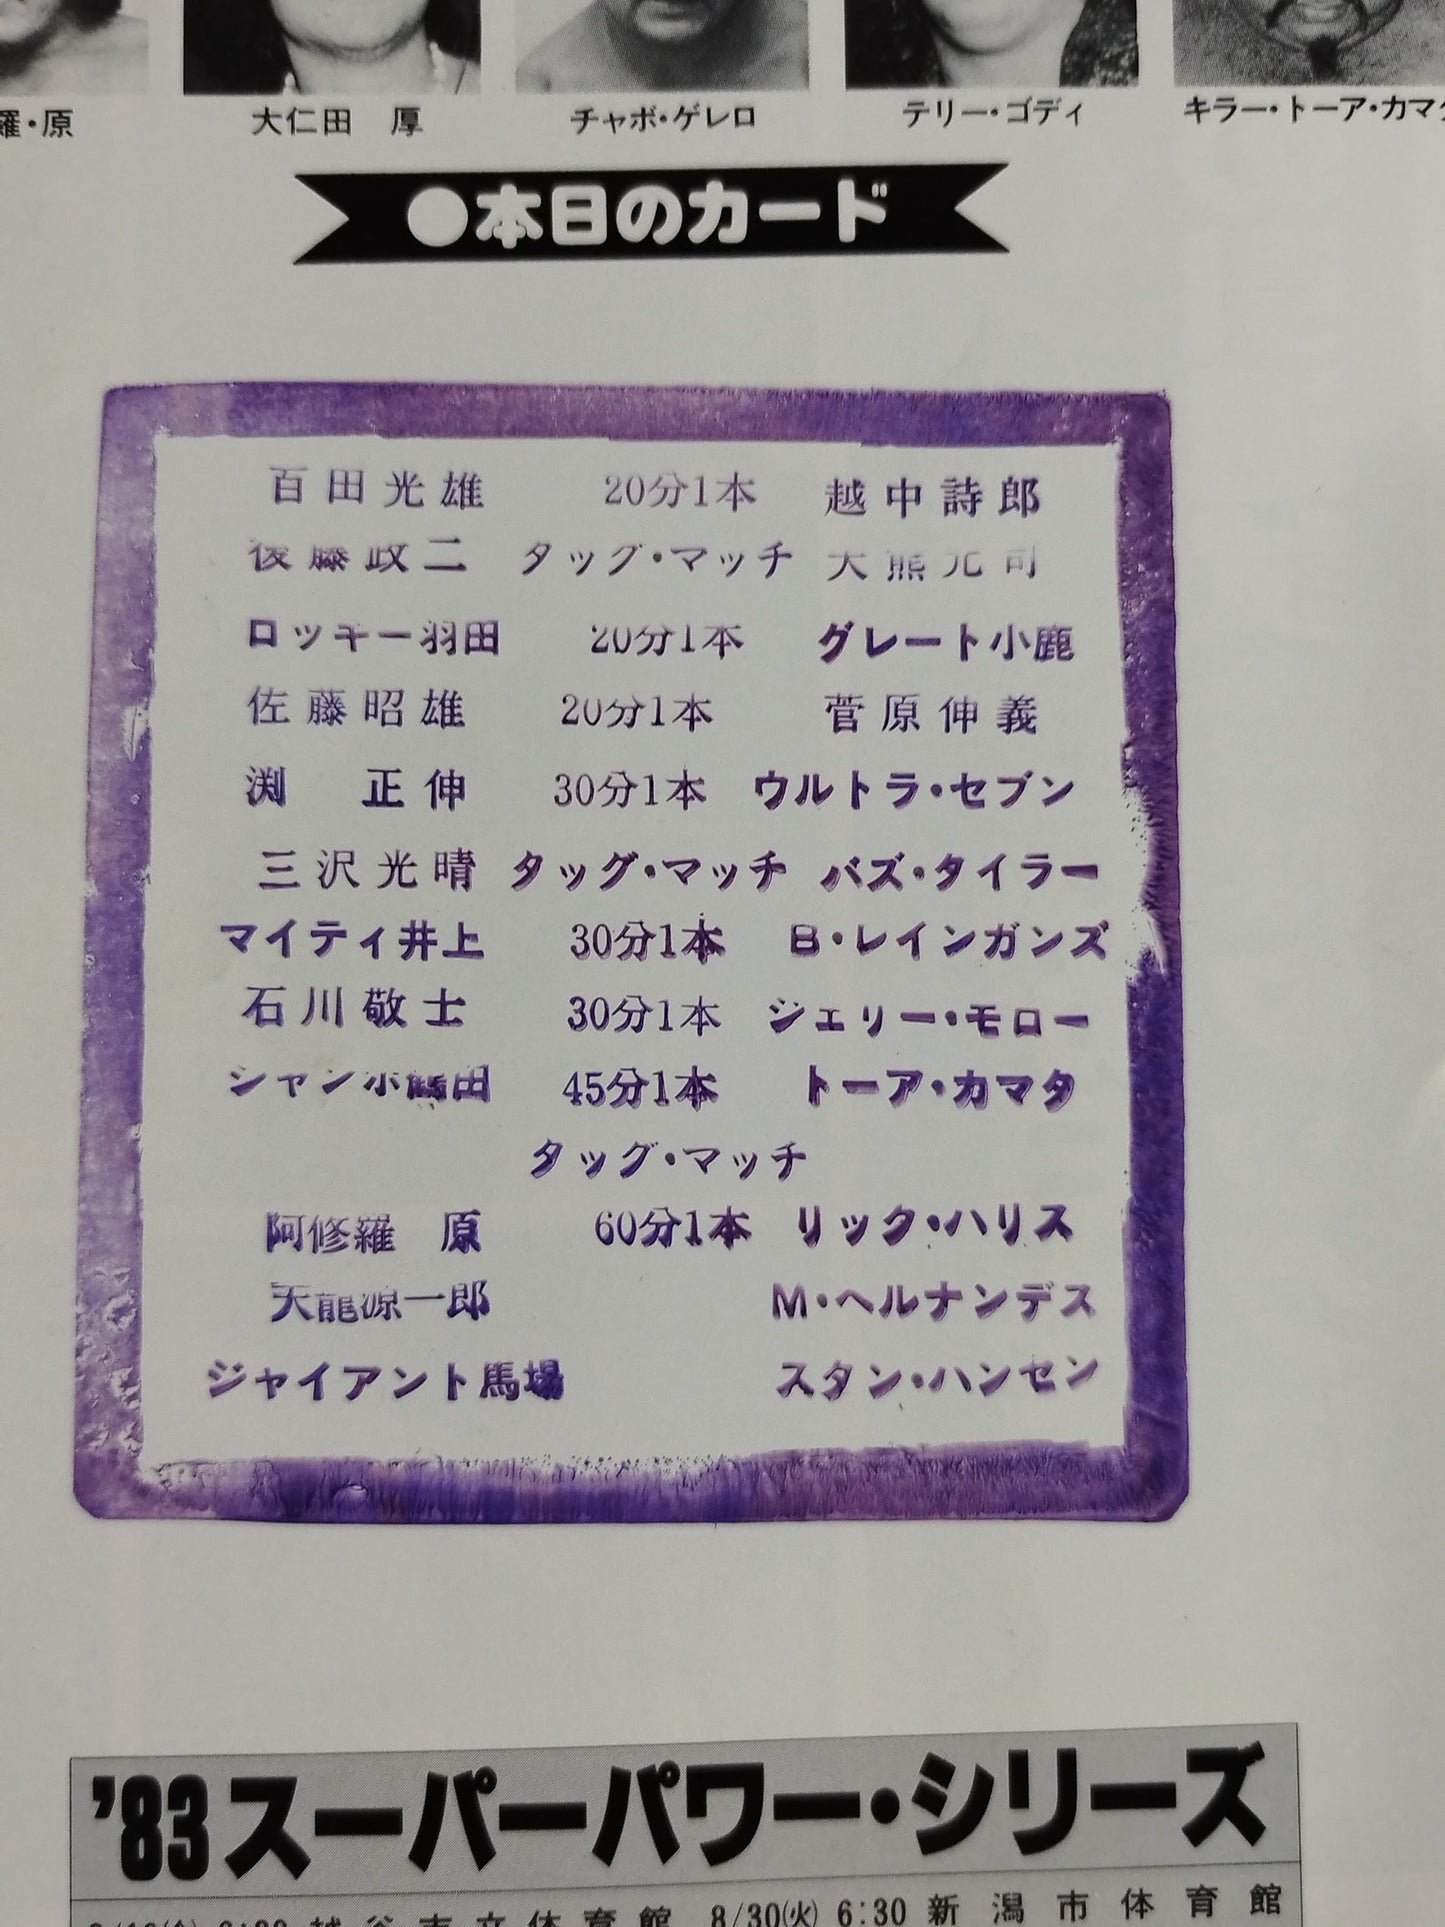 羅・原　大仁田　厚　チャボ・ゲレロ　テリー・ゴディ　キラー・トーア・カマタ
●本日のカード
百田光雄　20分1本　越中詩郎
後藤政二　タッグ・マッチ　大熊元司
ロッキー羽田　20分1本　グレート小鹿
佐藤昭雄　20分1本　菅原伸義
渕　正伸　30分1本　ウルトラ・セブン
三沢光晴　タッグ・マッチ　バズ・タイラー
マイティ井上　30分1本　B・レインガンズ
石川敬士　30分1本　ジェリー・モロー
ジャンボ鶴田　45分1本　トーア・カマタ
タッグ・マッチ
阿修羅　原　60分1本　リック・ハリス
天龍源一郎　M・ヘルナンデス
ジャイアント馬場　スタン・ハンセン
'83スーパーパワー・シリーズ
越谷市立体育館　8/30(火) 6:30 新潟市体育館